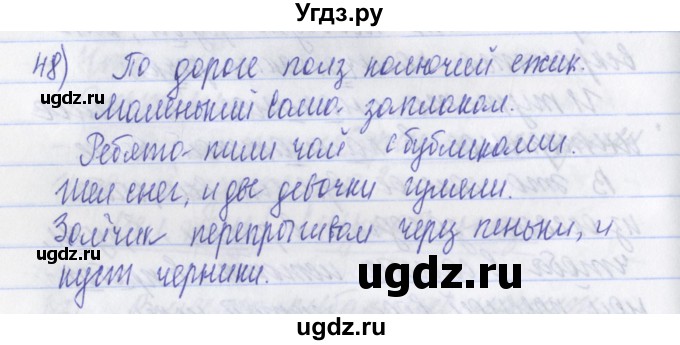 Угдз.ру
48) По дороге полз колючий ёжик.
ugdz.ru
Маленький Саша заплакал.
Ребята пили чай с бубликами.
ugdz.ru
Шёл снег, и две девочки гуляли.
Зайчик перепрыгивал через пеньки, и
куст черники.
ugdz.ru
ugdz.ru